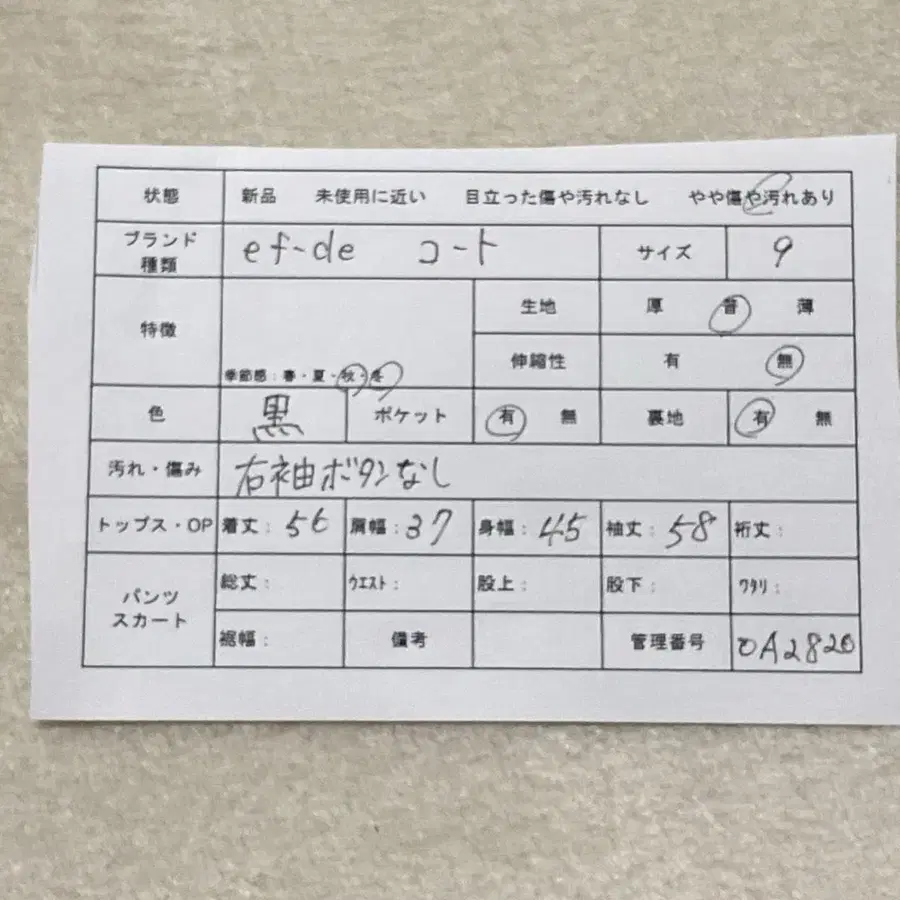 状態 新品 未使用に近い 目立った傷や汚れなし やや傷や汚れあり
ブランド 種類 ef-de コート サイズ 9
特徴 生地 厚 普 薄
季節感：春・夏・秋・冬 伸縮性 有 無
色 黒 ポケット 有 無 裏地 有 無
汚れ・傷み 右袖ボタンなし
トップス・OP 着丈：56 肩幅：37 身幅：45 袖丈：58 裄丈：
パンツ スカート 総丈： ウエスト： 股上： 股下： ワタリ：
裾幅： 備考 管理番号 OA2820